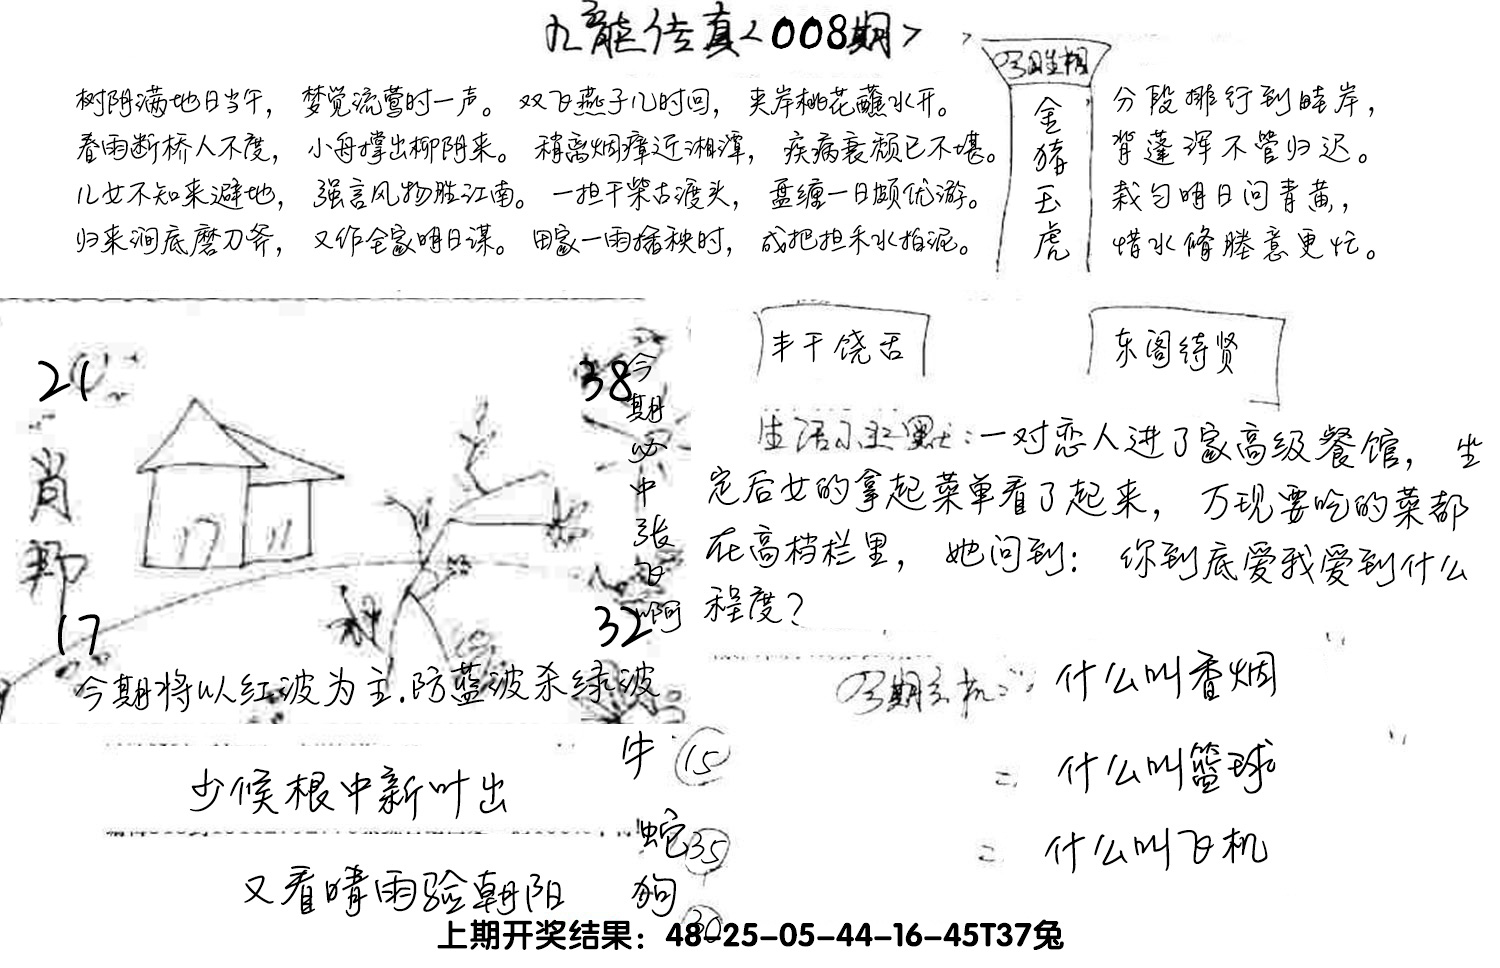 九龍传真<008期>
树阴满地日当午， 梦觉流莺时一声。 双飞燕子几时回， 夹岸桃花蘸水开。
春雨断桥人不度， 小舟撑出柳阴来。 稍离烟瘴近湘潭， 疾病衰颜已不堪。
儿女不知来避地， 强言风物胜江南。 一担干柴古渡头， 盘缠一日颇优游。
归来涧底磨刀斧， 又作全家明日谋。 田家一雨插秧时， 成把担禾水拍泥。
金
猪
玉
虎
分段排行到畦岸，
背蓬浑不管归迟。
栽匀明日问青黄，
惜水脩塍意更忙。
21
38
肖
17
32
今
期
必
中
张
飞
啊
今期将以红波为主.防蓝波杀绿波
丰干饶舌
东阁待贤
生活 默:一对恋人进了家高级餐馆， 坐
定后女的拿起菜单看了起来， 万现要吃的菜都
在高档栏里， 她问到： 你到底爱我爱到什么
程度？
什么叫香烟
二 什么叫篮球
二 什么叫飞机
少候根中新叶出
又看晴雨验朝阳
牛 15
蛇 35
狗 30
上期开奖结果：48-25-05-44-16-45T37兔